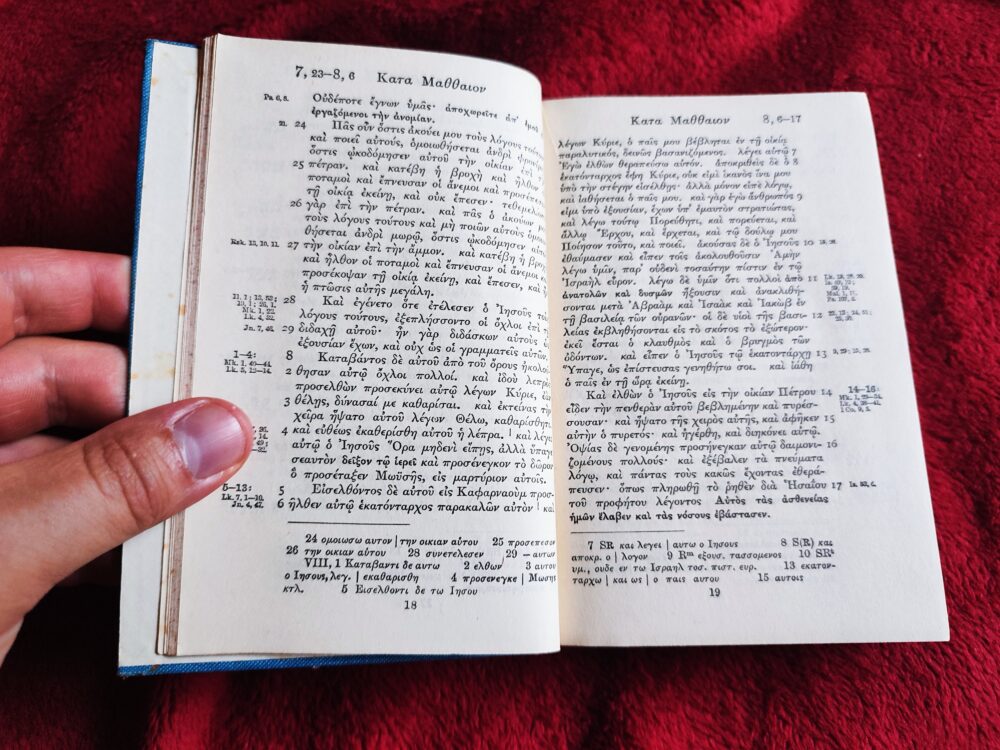 7, 23–8, 6 Κατα Μαθθαιον
Ps. 6, 8. Οὐδέποτε ἔγνων ὑμᾶς· ἀποχωρεῖτε ἀπ' ἐμοῦ
ἐργαζόμενοι τὴν ἀνομίαν.
21. 24 Πᾶς οὖν ὅστις ἀκούει μου τοὺς λόγους τούτους
καὶ ποιεῖ αὐτούς, ὁμοιωθήσεται ἀνδρὶ
ὅστις ᾠκοδόμησεν αὐτοῦ τὴν οἰκίαν ἐπὶ τ
25 πέτραν. καὶ κατέβη ἡ βροχὴ καὶ ἦλθον
ποταμοὶ καὶ ἔπνευσαν οἱ ἄνεμοι καὶ προσέπεσαν
τῇ οἰκίᾳ ἐκείνῃ, καὶ οὐκ ἔπεσεν· τεθεμελίω
26 γὰρ ἐπὶ τὴν πέτραν. καὶ πᾶς ὁ ἀκούων μου
τοὺς λόγους τούτους καὶ μὴ ποιῶν αὐτοὺς ὁμοιω
θήσεται ἀνδρὶ μωρῷ, ὅστις ᾠκοδόμησεν αὐτοῦ
Ezk. 13, 10. 11. 27 τὴν οἰκίαν ἐπὶ τὴν ἄμμον. καὶ κατέβη ἡ βροχὴ
καὶ ἦλθον οἱ ποταμοὶ καὶ ἔπνευσαν οἱ ἄνεμοι κα
προσέκοψαν τῇ οἰκίᾳ ἐκείνῃ, καὶ ἔπεσεν, καὶ ἦν
ἡ πτῶσις αὐτῆς μεγάλη.
11, 1; 13, 53;
19, 1; 26, 1.
Mk. 1, 22.
Lk. 4, 32.
28 Καὶ ἐγένετο ὅτε ἐτέλεσεν ὁ Ἰησοῦς τοὺς
λόγους τούτους, ἐξεπλήσσοντο οἱ ὄχλοι ἐπὶ τῇ
Jn. 7, 46. 29 διδαχῇ αὐτοῦ· ἦν γὰρ διδάσκων αὐτοὺς ὡς
ἐξουσίαν ἔχων, καὶ οὐχ ὡς οἱ γραμματεῖς αὐτῶν.
1–4:
Mk. 1, 40–44.
Lk. 5, 12–14.
8 Καταβάντος δὲ αὐτοῦ ἀπὸ τοῦ ὄρους ἠκολού
2 θησαν αὐτῷ ὄχλοι πολλοί. καὶ ἰδοὺ λεπρὸς
προσελθὼν προσεκύνει αὐτῷ λέγων Κύριε, ἐὰν
3 θέλῃς, δύνασαί με καθαρίσαι. καὶ ἐκτείνας τὴν
χεῖρα ἥψατο αὐτοῦ λέγων Θέλω, καθαρίσθητι.
4 καὶ εὐθέως ἐκαθερίσθη αὐτοῦ ἡ λέπρα. | καὶ λέγει
αὐτῷ ὁ Ἰησοῦς Ὅρα μηδενὶ εἴπῃς, ἀλλὰ ὕπαγε
σεαυτὸν δεῖξον τῷ ἱερεῖ καὶ προσένεγκον τὸ δῶρον
ὃ προσέταξεν Μωϋσῆς, εἰς μαρτύριον αὐτοῖς.
5–13:
Lk. 7, 1–10.
Jn. 4, 47.
5 Εἰσελθόντος δὲ αὐτοῦ εἰς Καφαρναοὺμ προσ-
6 ῆλθεν αὐτῷ ἑκατόνταρχος παρακαλῶν αὐτὸν | καὶ
24 ομοιωσω αυτον | την οικιαν αυτου 25 προσεπεσον
26 την οικιαν αὐτου 28 συνετελεσεν 29 – αυτων
VIII, 1 Καταβαντι δε αυτω 2 ελθων 3 αυτου
ο Ιησους, λεγ. | εκαθαρισθη 4 προσενεγκε | Μωσης
κτλ. 5 Εισελθοντι δε τω Ιησου
18
Κατα Μαθθαιον 8, 6–17
λέγων Κύριε, ὁ παῖς μου βέβληται ἐν τῇ οἰκίᾳ
παραλυτικός, δεινῶς βασανιζόμενος. λέγει αὐτῷ 7
Ἐγὼ ἐλθὼν θεραπεύσω αὐτόν. ἀποκριθεὶς δὲ ὁ 8
ἑκατόνταρχος ἔφη Κύριε, οὐκ εἰμὶ ἱκανὸς ἵνα μου
ὑπὸ τὴν στέγην εἰσέλθῃς· ἀλλὰ μόνον εἰπὲ λόγῳ,
καὶ ἰαθήσεται ὁ παῖς μου. καὶ γὰρ ἐγὼ ἄνθρωπός 9
εἰμι ὑπὸ ἐξουσίαν, ἔχων ὑπ' ἐμαυτὸν στρατιώτας,
καὶ λέγω τούτῳ Πορεύθητι, καὶ πορεύεται, καὶ
ἄλλῳ Ἔρχου, καὶ ἔρχεται, καὶ τῷ δούλῳ μου
Ποίησον τοῦτο, καὶ ποιεῖ. ἀκούσας δὲ ὁ Ἰησοῦς 10
ἐθαύμασεν καὶ εἶπεν τοῖς ἀκολουθοῦσιν Ἀμὴν
λέγω ὑμῖν, παρ' οὐδενὶ τοσαύτην πίστιν ἐν τῷ
Ἰσραὴλ εὗρον. λέγω δὲ ὑμῖν ὅτι πολλοὶ ἀπὸ 11
ἀνατολῶν καὶ δυσμῶν ἥξουσιν καὶ ἀνακλιθή-
σονται μετὰ Ἀβραὰμ καὶ Ἰσαὰκ καὶ Ἰακὼβ ἐν
τῇ βασιλείᾳ τῶν οὐρανῶν· οἱ δὲ υἱοὶ τῆς βασι- 12
λείας ἐκβληθήσονται εἰς τὸ σκότος τὸ ἐξώτερον·
ἐκεῖ ἔσται ὁ κλαυθμὸς καὶ ὁ βρυγμὸς τῶν
ὀδόντων. καὶ εἶπεν ὁ Ἰησοῦς τῷ ἑκατοντάρχῃ 13
Ὕπαγε, ὡς ἐπίστευσας γενηθήτω σοι. καὶ ἰάθη
ὁ παῖς ἐν τῇ ὥρᾳ ἐκείνῃ.
Καὶ ἐλθὼν ὁ Ἰησοῦς εἰς τὴν οἰκίαν Πέτρου 14
14–16:
Mk. 1, 29–34.
Lk. 4, 38–41.
1 Co. 9, 5.
εἶδεν τὴν πενθερὰν αὐτοῦ βεβλημένην καὶ πυρέσ-
σουσαν· καὶ ἥψατο τῆς χειρὸς αὐτῆς, καὶ ἀφῆκεν 15
αὐτὴν ὁ πυρετός· καὶ ἠγέρθη, καὶ διηκόνει αὐτῷ.
Ὀψίας δὲ γενομένης προσήνεγκαν αὐτῷ δαιμονι- 16
ζομένους πολλούς· καὶ ἐξέβαλεν τὰ πνεύματα
λόγῳ, καὶ πάντας τοὺς κακῶς ἔχοντας ἐθερά-
πευσεν· ὅπως πληρωθῇ τὸ ῥηθὲν διὰ Ἠσαΐου 17 Is. 53, 4.
τοῦ προφήτου λέγοντος Αὐτὸς τὰς ἀσθενείας
ἡμῶν ἔλαβεν καὶ τὰς νόσους ἐβάστασεν.
7 SR και λεγει | αυτω ο Ιησους 8 S(R) και
αποκρ. ο | λογον 9 Rᵐ εξουσ. τασσομενος 10 SRᵗ
υμ., ουδε εν τω Ισραηλ τοσ. πιστ. ευρ. 13 εκατον-
ταρχω | και ως | ο παις αυτου 15 αυτοις
19